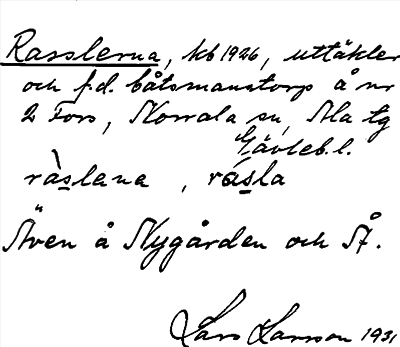 Rasslerna, kb 1926, uttäkter
och f.d. båtsmanstorp å nr
2 Fors, Norrala sn, Ala tg
Gävleb. l.
ràslena, rásla
Även å Nygården och Å.
Lars Larsson 1931